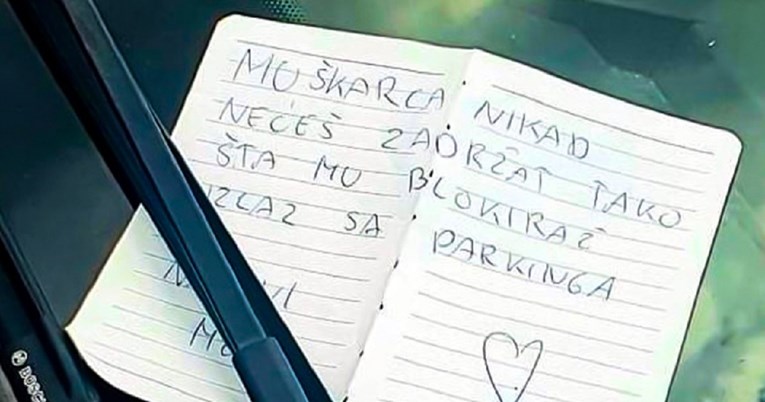 MUŠKARCA NIKAD
NEĆEŠ ZADRŽAT TAKO
ŠTA MU BLOKIRAŠ
IZLAZ SA PARKINGA